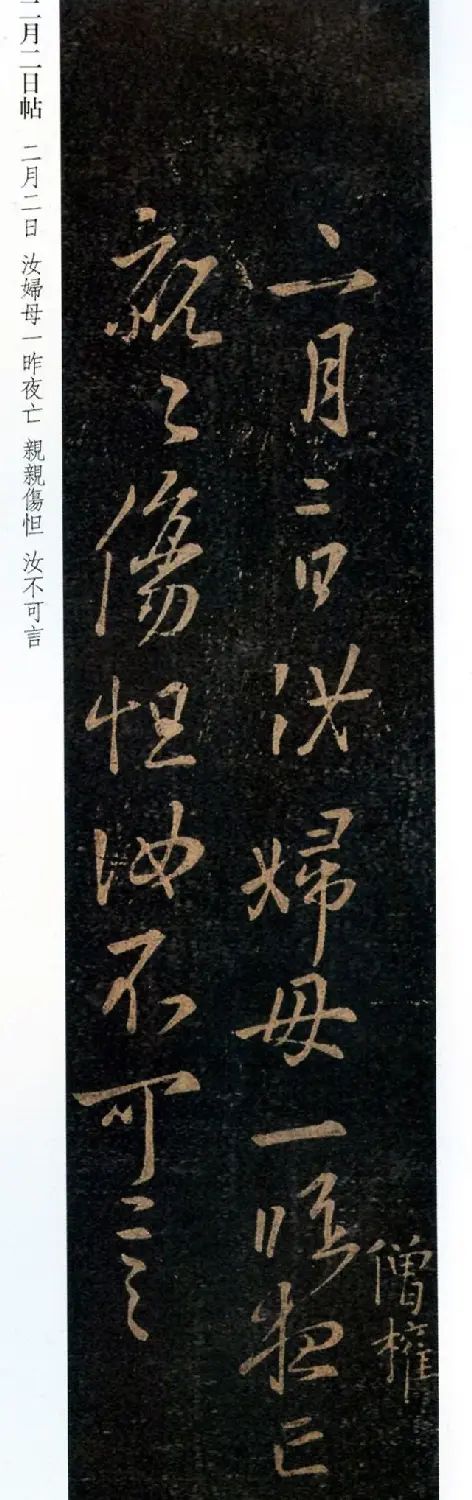 僧權
二月二日汝婦母一昨夜亡
親〻傷怛汝不可言
二月二日帖 二月二日 汝婦母一昨夜亡 親親傷怛 汝不可言